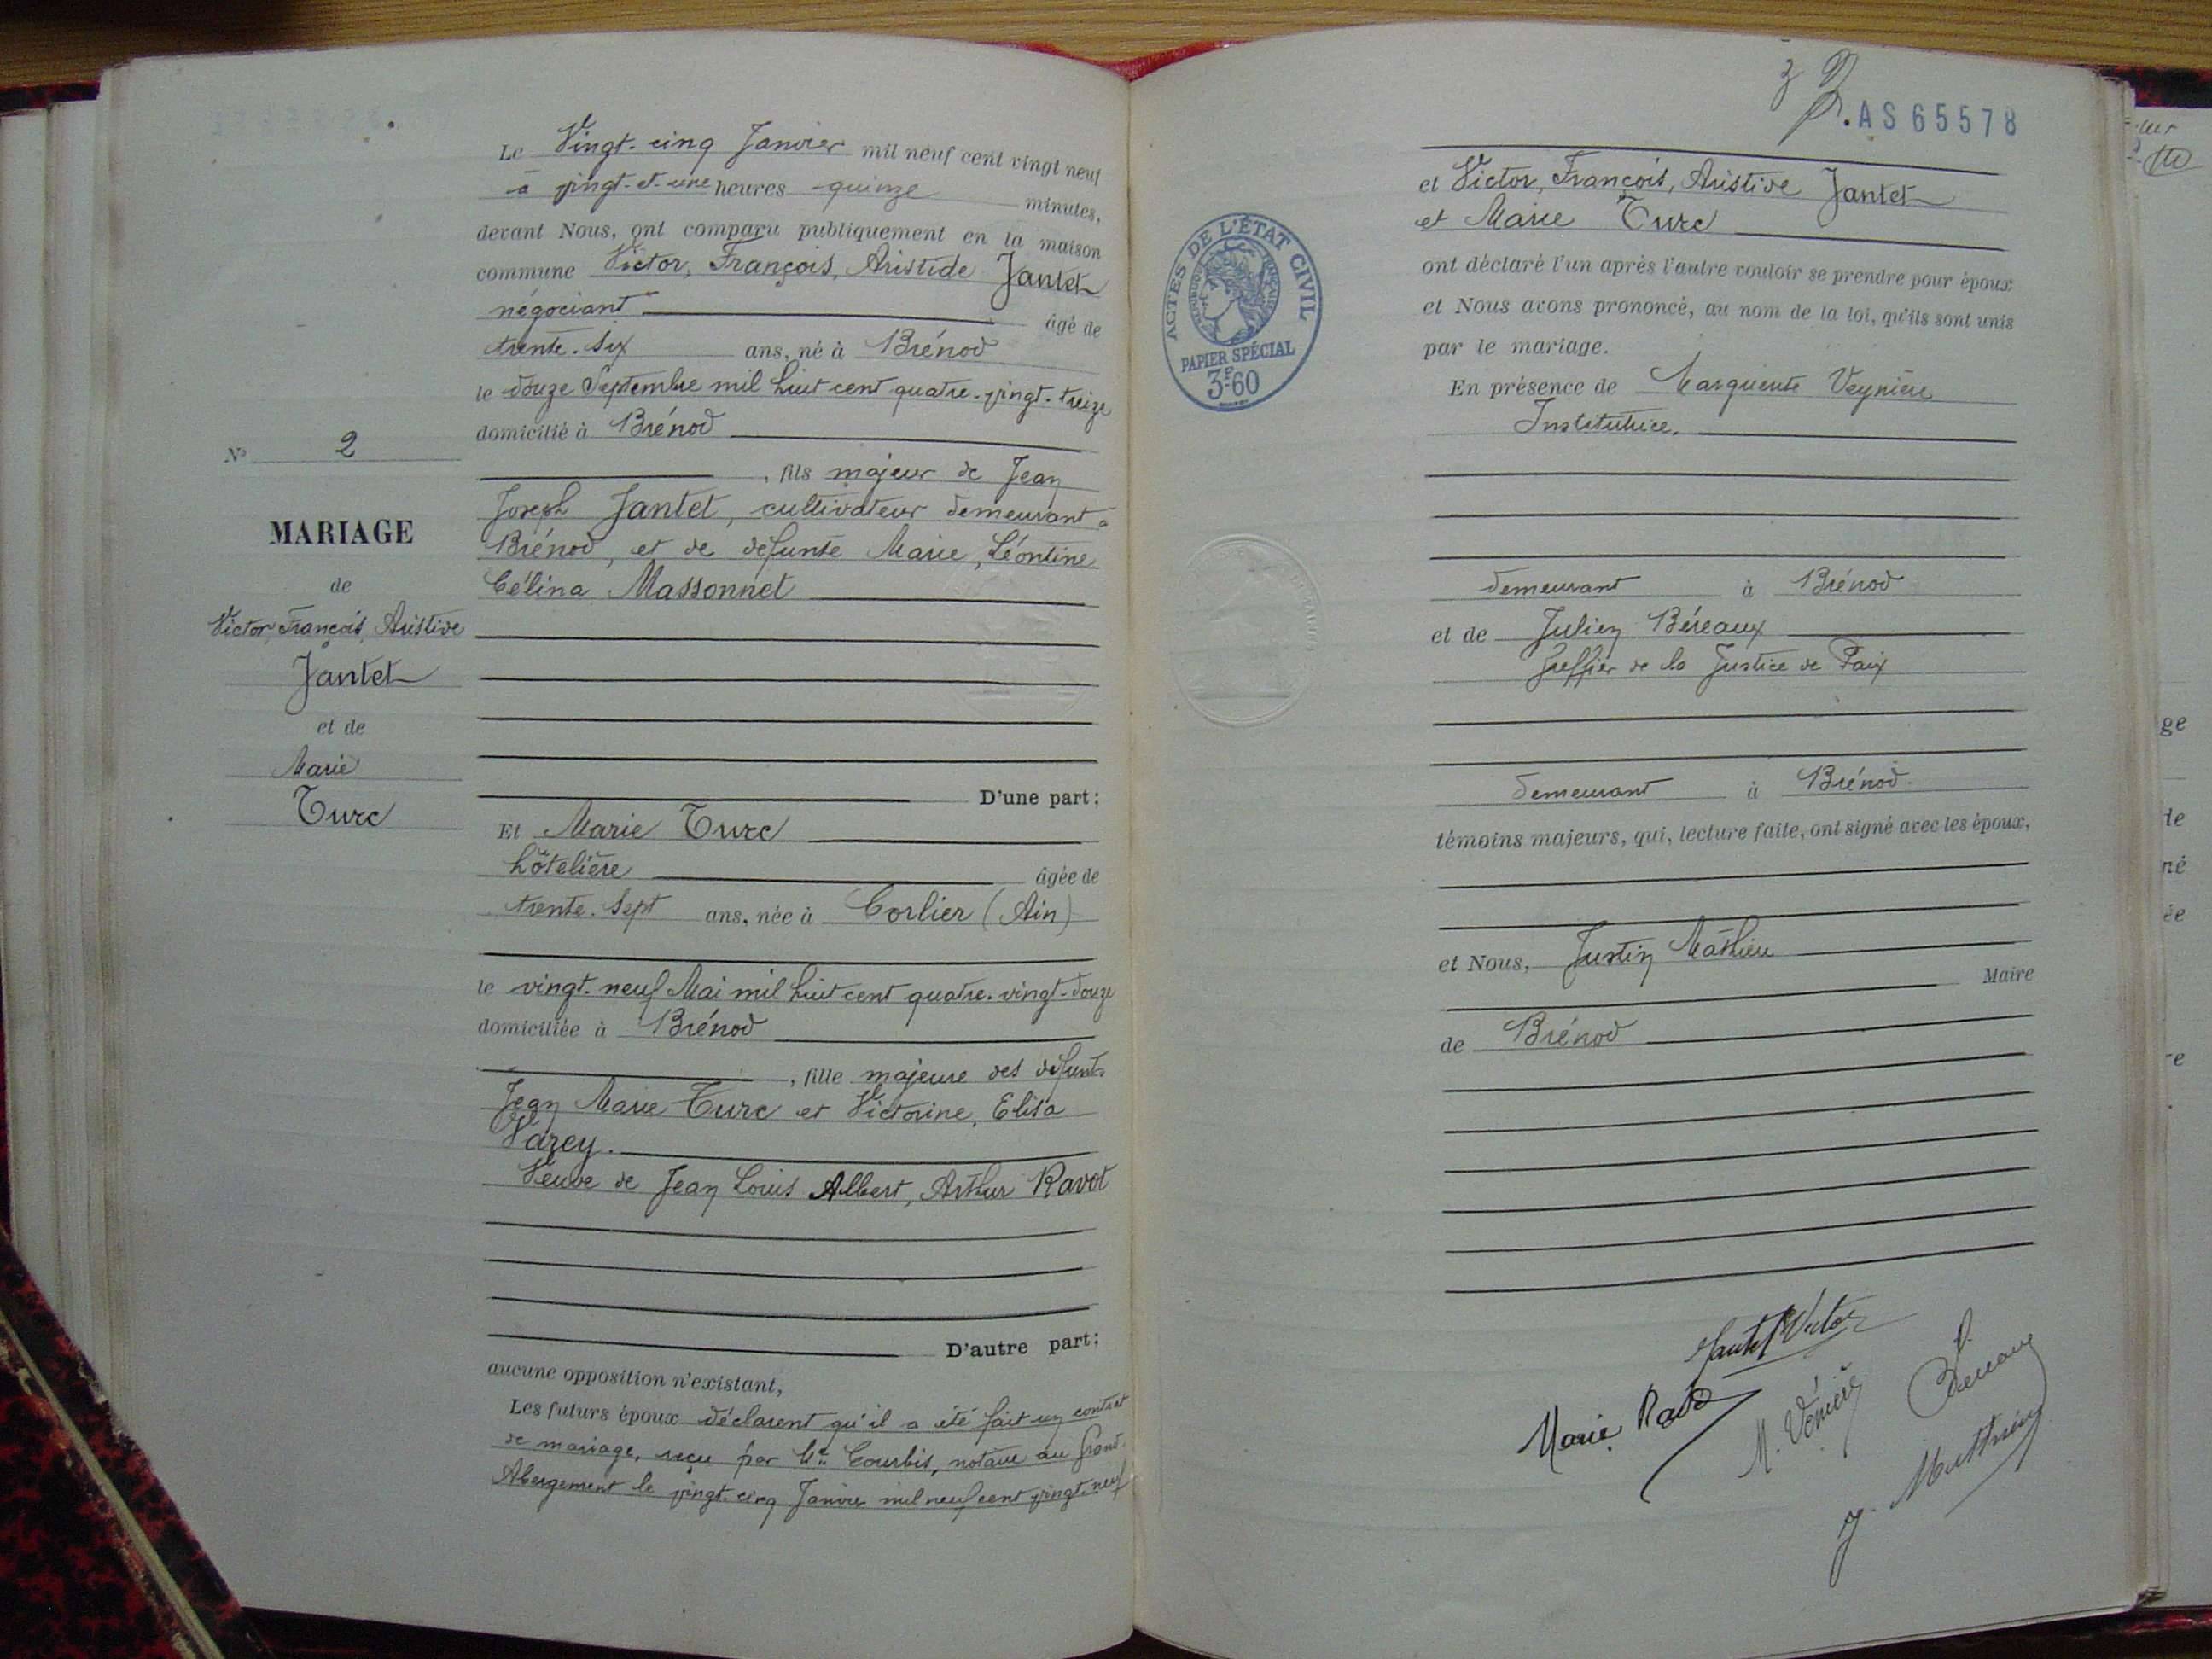 Le Vingt-cinq Janvier mil neuf cent vingt neuf
à vingt-et-une heures quinze minutes,
devant Nous, ont comparu publiquement en la maison
commune Victor, François, Aristide Jantet
négociant âgé de
trente-six ans, né à Brénod
le douze Septembre mil huit cent quatre-vingt-treize
domicilié à Brénod
, fils majeur de Jean
Joseph Jantet, cultivateur demeurant à
Brénod, et de défunte Marie, Léontine
Célina Massonnet
D'une part:
Et Marie Turc
hôtelière âgée de
trente-sept ans, née à Corlier (Ain)
le vingt-neuf Mai mil huit cent quatre-vingt-douze
domiciliée à Brénod
, fille majeure des défunts
Jean Marie Turc et Victorine, Elisa
Varey.
Veuve de Jean Louis Albert, Arthur Ravot
D'autre part:
aucune opposition n'existant,
Les futurs époux déclarent qu'il a été fait un contrat
de mariage, reçu par Me Courbis, notaire au Grand-
Abergement le vingt-cinq Janvier mil neuf cent vingt-neuf
No 2
MARIAGE
de
Victor François, Aristide
Jantet
et de
Marie
Turc
3
AS65578
et Victor, François, Aristide Jantet
et Marie Turc
ont déclaré l'un après l'autre vouloir se prendre pour époux
et Nous avons prononcé, au nom de la loi, qu'ils sont unis
par le mariage.
En présence de Marguerite Veynière
Institutrice,
demeurant à Brénod
et de Julien Béreaux
Greffier de la Justice de Paix
demeurant à Brénod.
témoins majeurs, qui, lecture faite, ont signé avec les époux,
et Nous, Justin Mathieu
Maire
de Brénod
ACTES DE L'ÉTAT CIVIL
PAPIER SPÉCIAL
3F60
Jantet Victor
Marie
J. Mathieu
ge
de
né
ée